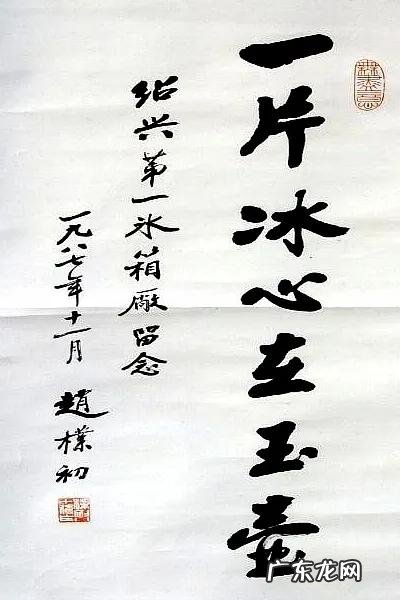 一片冰心在玉壶
绍兴第一冰箱廠留念
一九八七年十一月
趙樸初
广东龙网